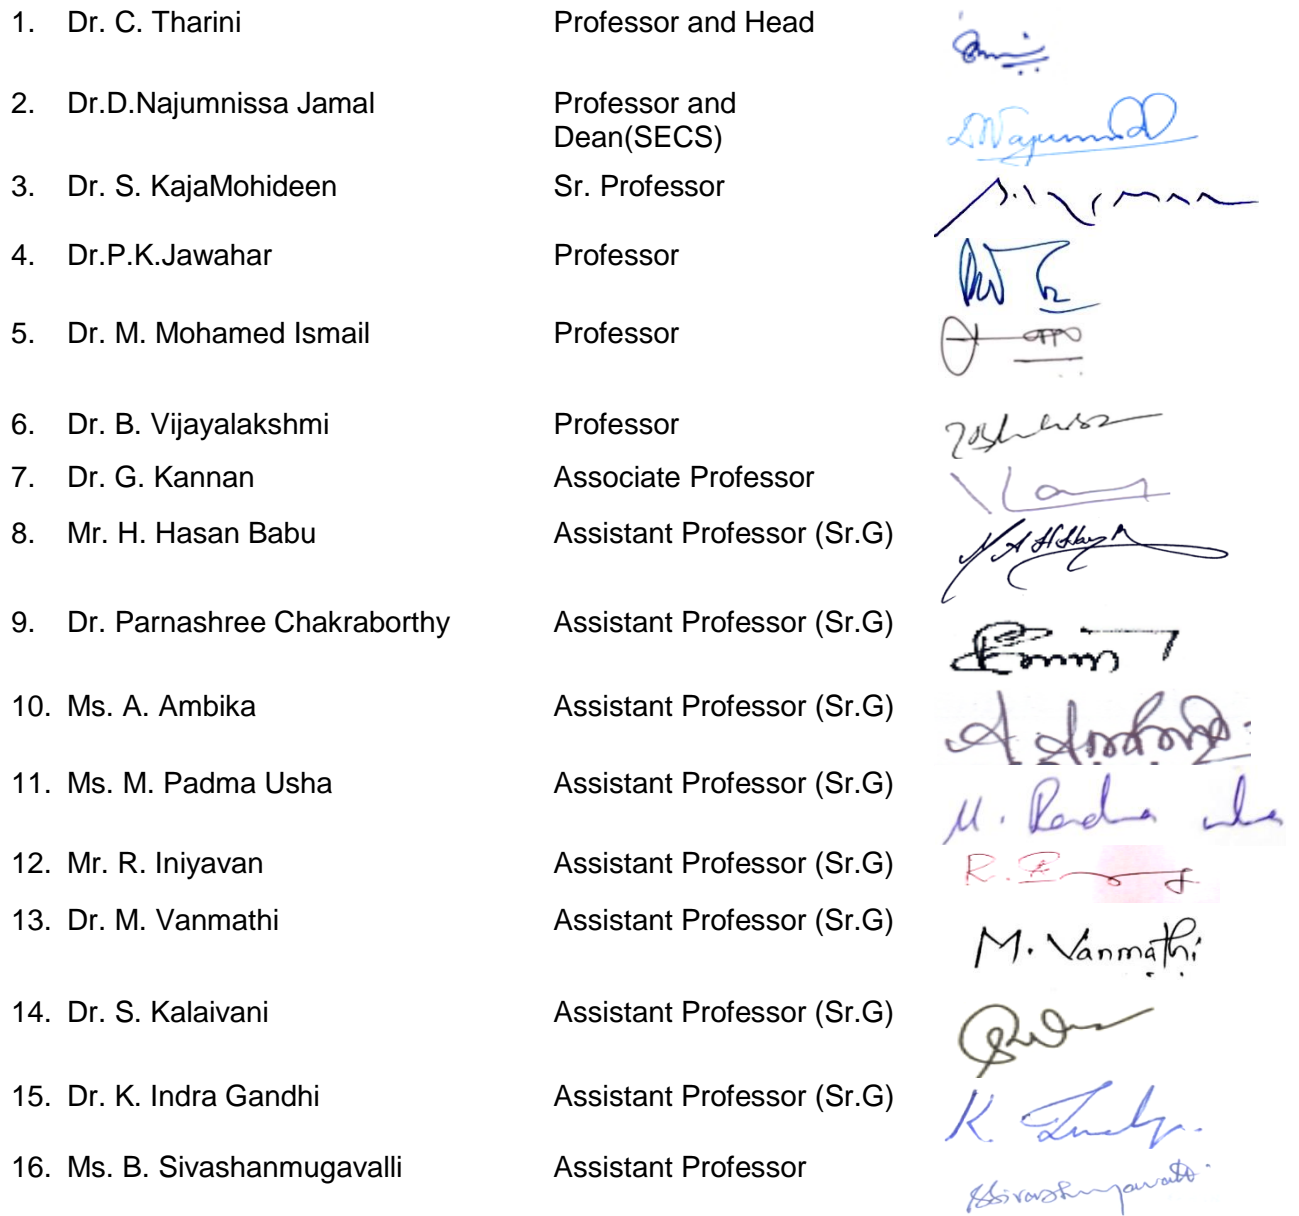 1. Dr. C. Tharini Professor and Head
2. Dr.D.Najumnissa Jamal Professor and
Dean(SECS)
3. Dr. S. KajaMohideen Sr. Professor
4. Dr.P.K.Jawahar Professor
5. Dr. M. Mohamed Ismail Professor
6. Dr. B. Vijayalakshmi Professor
7. Dr. G. Kannan Associate Professor
8. Mr. H. Hasan Babu Assistant Professor (Sr.G)
9. Dr. Parnashree Chakraborthy Assistant Professor (Sr.G)
10. Ms. A. Ambika Assistant Professor (Sr.G)
11. Ms. M. Padma Usha Assistant Professor (Sr.G) M. Padma usha
12. Mr. R. Iniyavan Assistant Professor (Sr.G) R.
13. Dr. M. Vanmathi Assistant Professor (Sr.G) M. Vanmathi
14. Dr. S. Kalaivani Assistant Professor (Sr.G)
15. Dr. K. Indra Gandhi Assistant Professor (Sr.G) K.
16. Ms. B. Sivashanmugavalli Assistant Professor